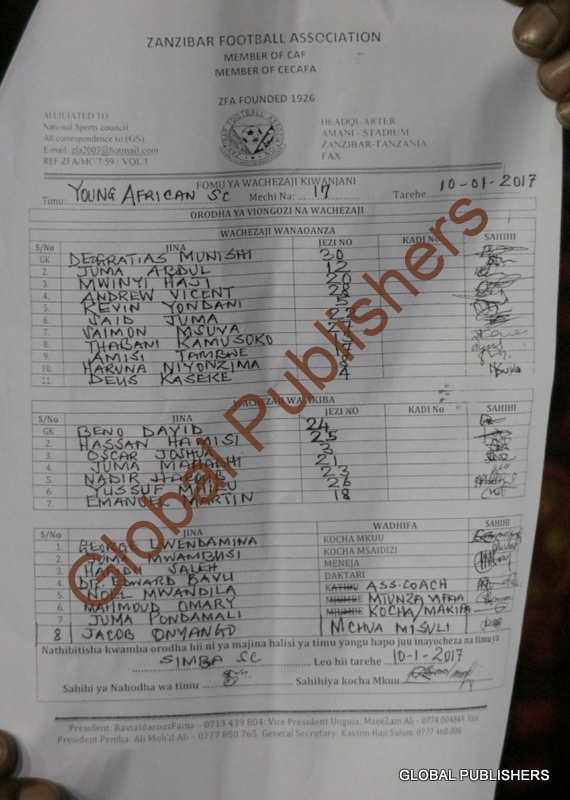 ZANZIBAR FOOTBALL ASSOCIATION
MEMBER OF CAF
MEMBER OF CECAFA
ZFA FOUNDED 1926
AFFILIATED TO
National Sports council
All correspondence to (GS)
E-mail: zfa2003@hotmail.com
REF ZFA/MC/7/59 - VOL.I
HEADQUARTER
AMANI - STADIUM
ZANZIBAR-TANZANIA
FAX
FOMU YA WACHEZAJI KIWANJANI
Timu: YOUNG AFRICAN SC Mechi Na: 17 Tarehe 10-01-2017
ORODHA YA VIONGOZI NA WACHEZAJI
WACHEZAJI WANAOANZA
S/No JINA JEZI NO KADI No SAHIHI
GK DEOGRATIAS MUNISHI 30
2. JUMA ABDUL 12
3. MWINYI HAJI 20
4. ANDREW VICENT 28
5. KEVIN YONDANI 5
6. SAID JUMA
7. SAIMON MSUVA 27
8. THABANI KAMUSOKO
9. AMISI TAMBWE 17
10. HARUNA NIYONZIMA 8
11. DEUS KASEKE 4
WACHEZAJI WA AKIBA
S/No JINA JEZI NO KADI No SAHIHI
GK BENO DAVID 24
2. HASSAN HAMISI 25
3. OSCAR JOSHUA 3
4. JUMA MAHADHI 21
5. NADIR 23
6. YUSSUF 26
7. EMANUEL MARTIN 18
S/No JINA WADHIFA SAHIHI
1. GEORGE LWENDAMINA KOCHA MKUU
2. JUMA MWAMBUSI KOCHA MSAIDIZI
3. SALEH MENEJA
4. DR. EDWARD BAVU DAKTARI
5 NOEL MWANDILA KATIBU ASS.COACH
6 MAHMOUD OMARY MJUMBE MTUNZA VIFAA
7 JUMA PONDAMALI MJUMBE KOCHA/MAKIPA
8 JACOB ONYANGO MCHUA MISULI
Nathibitisha kwamba orodha hii ni ya majina halisi ya timu yangu hapo juu inayocheza na timu ya
SIMBA SC Leo hii tarehe 10-1-2017
Sahihi ya Nahodha wa timu Sahihi ya kocha Mkuu
President RavaIdarousFaina - 0713 439 804: Vice President Unguja MzeeZam Ali - 0774 004849 Vice
President Pemba Ali Moh'd Ali - 0777 850 765. General Secretary Kassim Haji Salum 0777 460 008
Global Publishers
GLOBAL PUBLISHERS